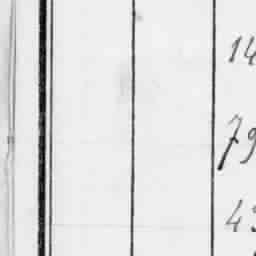 14
79
43